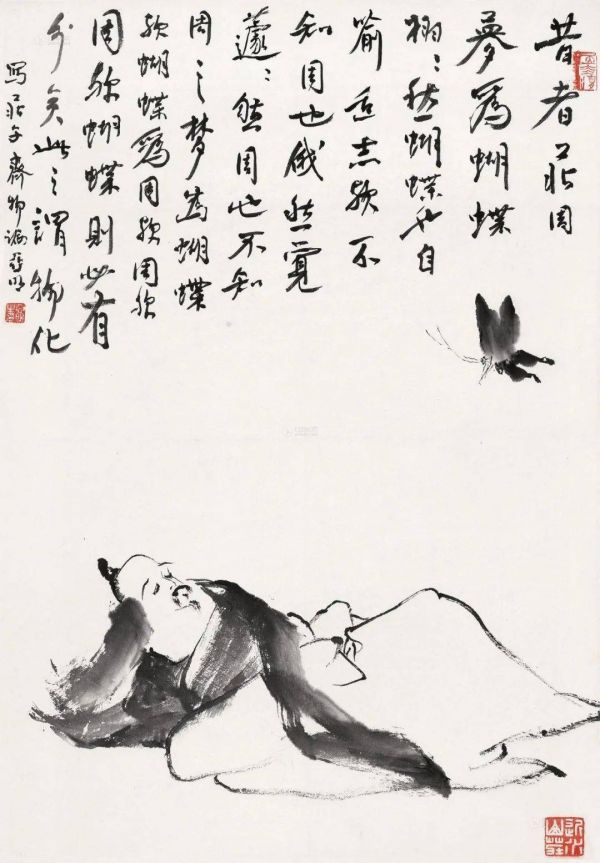 昔者莊周
夢爲蝴蝶
栩〻然蝴蝶也自
喻适志歟不
知周也俄然覺
蘧〻然周也不知
周之梦為蝴蝶
歟蝴蝶爲周歟周歟
周歟蝴蝶則必有
分矣此之謂物化
寫莊子齊物論亞明
近水山莊